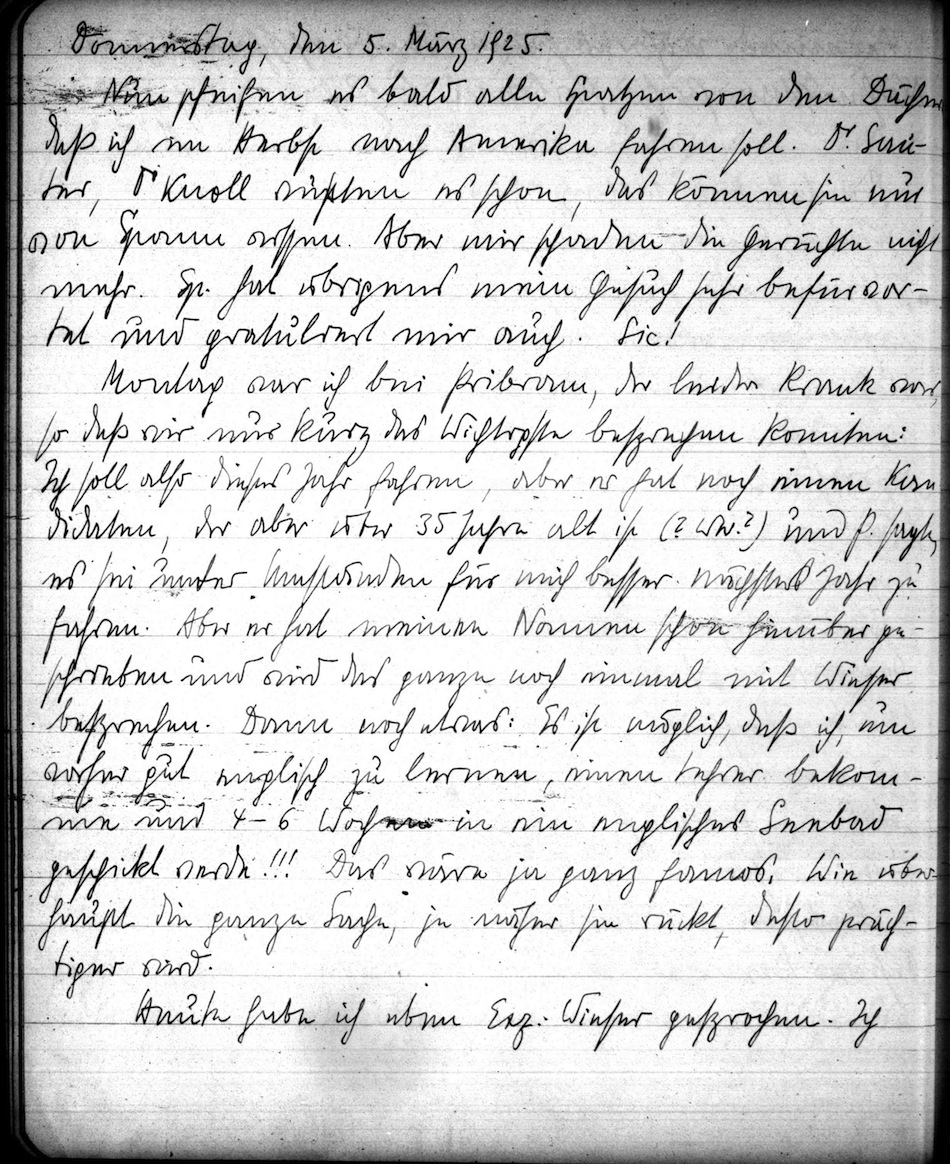 Donnerstag, den 5. März 1925.
Nun pfeifen es bald alle Spatzen von den Dächern
daß ich im Herbst nach Amerika fahren soll. Dr Sau-
ter, Dr Knoll wußten es schon, das können sie nur
von Spann wissen. Aber mir schaden die Gerüchte nicht
mehr. Sp. hat übrigens mein Gesuch sehr befürwor-
tet und gratuliert mir auch. Sic!
Montag war ich bei Pribram, der leider krank war,
so daß wir nur kurz das Wichtigste besprechen konnten:
Ich soll also dieses Jahr fahren, aber er hat noch einen Kan
didaten, der aber über 35 Jahre alt ist (? Ww.?) und P. sagte,
es sei unter Umständen für mich besser nächstes Jahr zu
fahren. Aber er hat meinen Namen schon hinüber ge-
schrieben und wird das ganze noch einmal mit Wieser
besprechen. Dann noch etwas: Es ist möglich, daß ich, um
vorher gut englisch zu lernen, einen Lehrer bekom-
me und 4-6 Wochen in ein englisches Seebad
geschickt werde!!! Das wäre ja ganz famos. Wie über-
haupt die ganze Sache, je näher sie rückt, desto präch-
tiger wird.
Heute habe ich eben Exz. Wieser gesprochen. Ich